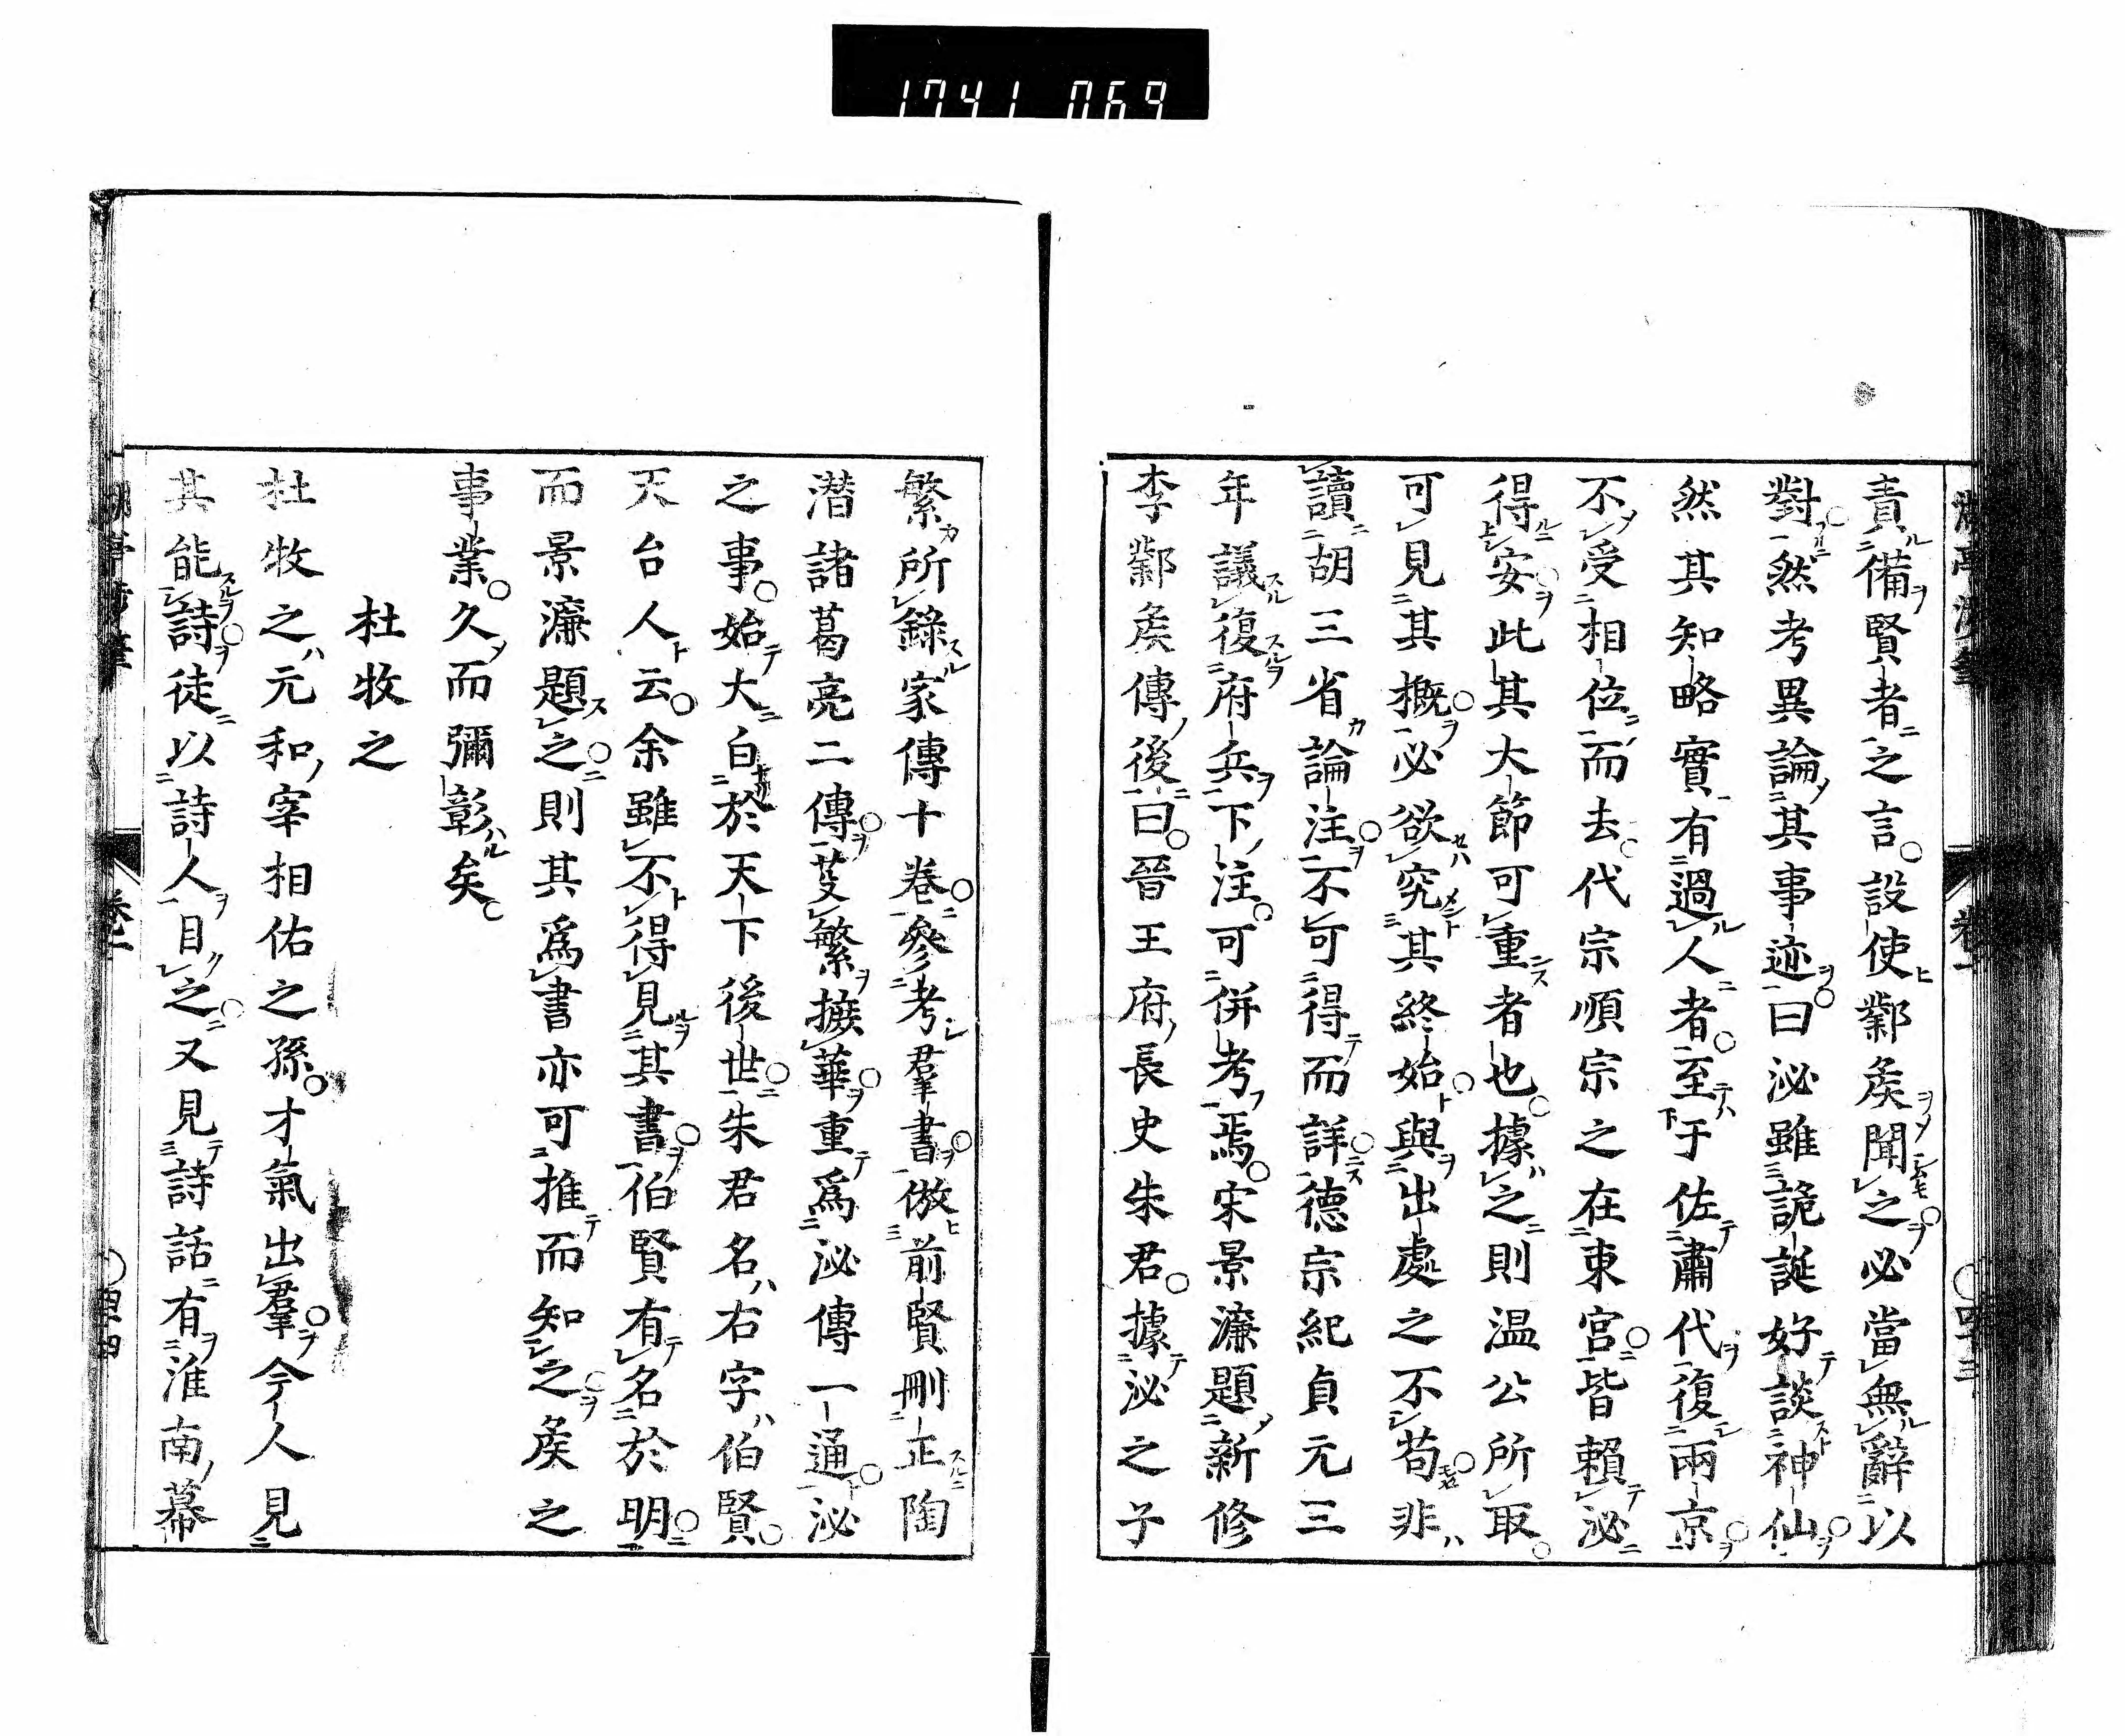 1741 069
責備賢者之言設使鄴矦聞之必當無辭以
對然考異論其事迹曰泌雖詭誕好談神仙
然其知略實有過人者至于佐肅代復兩京
不受相位而去代宗順宗之在東宮皆賴泌
得安此其大節可重者也據之則温公所取
可見其概必欲究其終始與出處之不苟非
讀胡三省論注不可得而詳德宗紀貞元三
年議復府兵下注可併考焉宋景濂題新修
李鄴矦傳後曰晉王府長史朱君據泌之子
繁所錄家傳十卷參考羣書倣前賢刪正陶
潛諸葛亮二傳芟繁摭華重爲泌傳一通泌
之事始大白於天下後世朱君名右字伯賢
天台人云余雖不得見其書伯賢有名於明
而景濂題之則其爲書亦可推而知之矦之
事業久而彌彰矣
杜牧之
杜牧之元和宰相佑之孫才氣出羣今人見
其能詩徒以詩人目之又見詩話有淮南幕